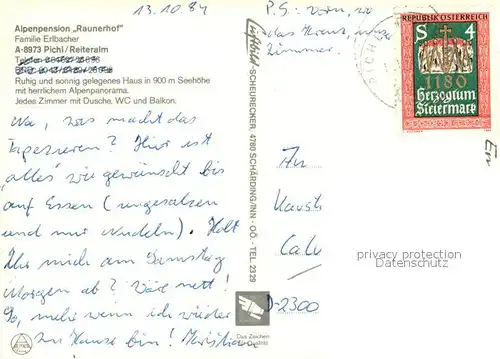 Alpenpension „Raunerhof“
Familie Erlbacher
A-8973 Pichl/Reiteralm
Ruhig und sonnig gelegenes Haus in 900 m Seehöhe
mit herrlichem Alpenpanorama.
Jedes Zimmer mit Dusche, WC und Balkon.
13.10.84
Na, was macht das
Tapezieren? Hier ist
"alles" wie gewünscht bis
auf Essen (ungesalzen
und nur Nudeln). Holt
Ihr mich am Samstag
Morgen ab? Wäre nett!
So, mehr wenn ich wieder
zu Hause bin! Kristiana
Luftbild-SCHEURECKER, 4780 SCHÄRDING/INN - OÖ. - TEL 2329
P.S.: vorn, wo
das Kreuz, unser
Zimmer.
REPUBLIK ÖSTERREICH
S 4
1180
Herzogtum
Steiermark
PICHL
An
D-2300
privacy protection
Datenschutz
Das Zeichen